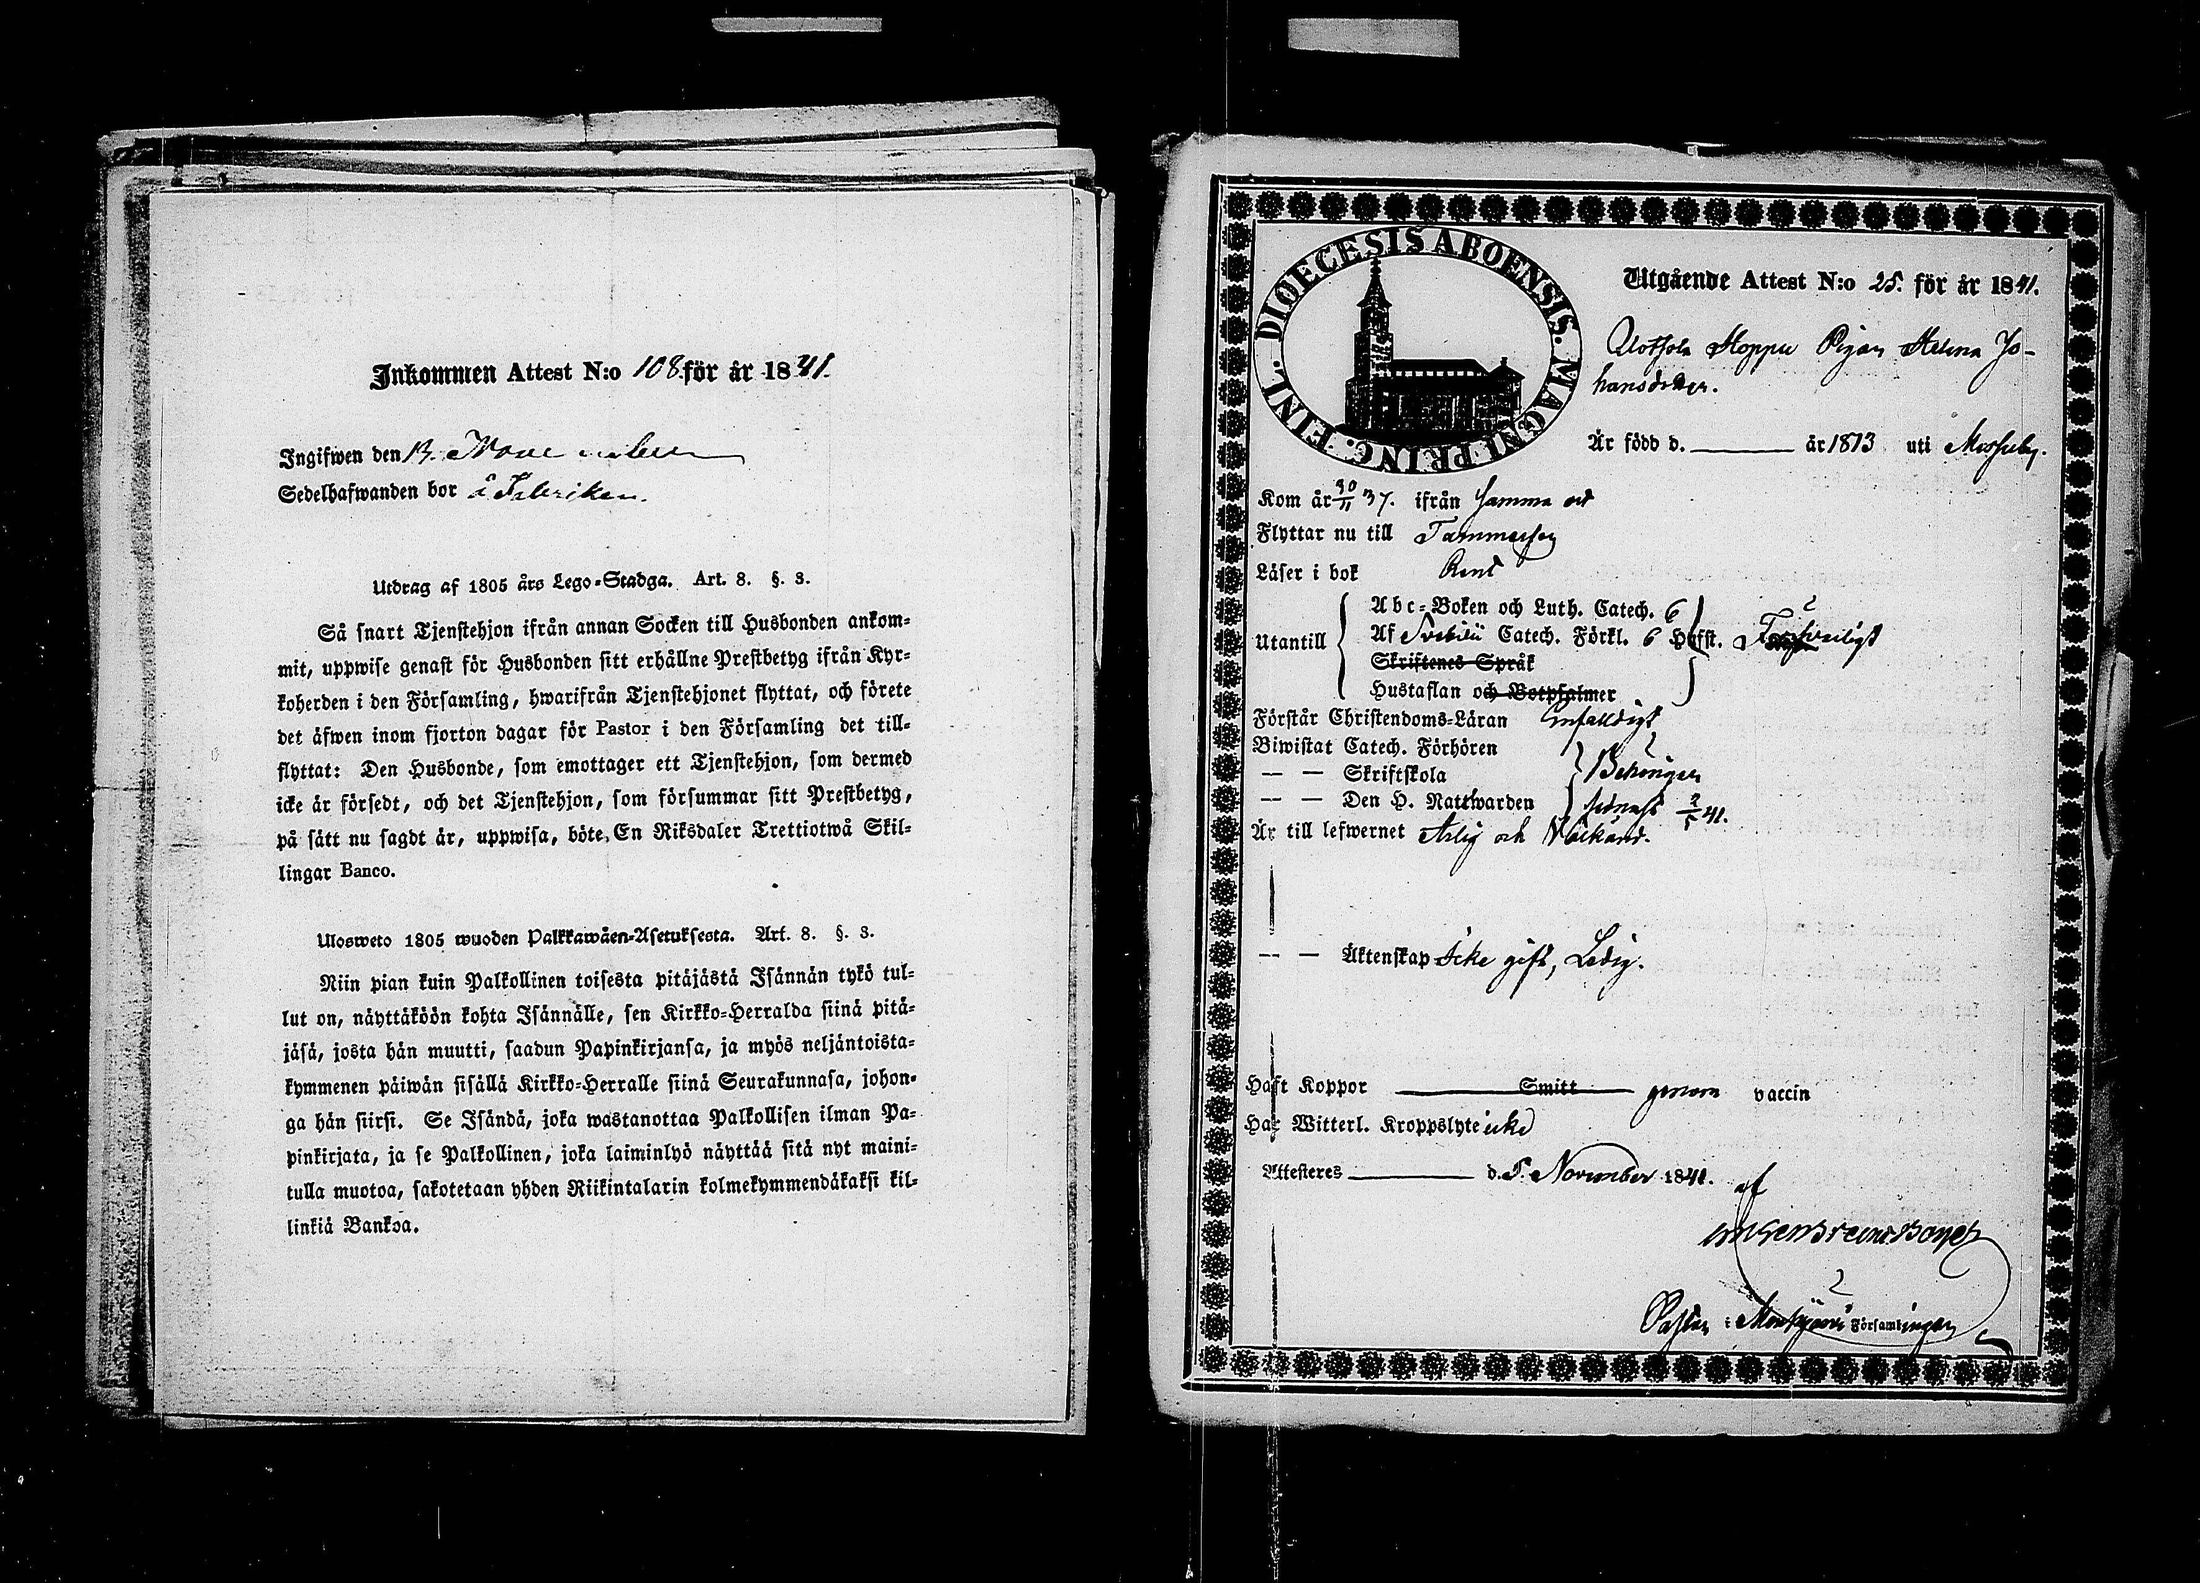 Inkommen Attest N:o 108. för år 1841.
Ingifwen den 13. November
Sedelhafwanden bor å Fabriken.
Utdrag af 1805 års Lego-Stadga. Art. 8. §. 3.
Så snart Tjenstehjon ifrån annan Socken till Husbonden ankom-
mit, uppwise genast för Husbonden sitt erhållne Prestbetyg ifrån Kyr-
koherden i den Församling, hwarifrån Tjenstehjonet flyttat, och förete
det äfwen inom fjorton dagar för Pastor i den Församling det till-
flyttat: Den Husbonde, som emottager ett Tjenstehjon, som dermed
icke är försedt, och det Tjenstehjon, som försummar sitt Prestbetyg,
på sätt nu sagdt är, uppwisa, böte, En Riksdaler Trettiotwå Skil-
lingar Banco.
Ulosweto 1805 wuoden Palkkawäen-Asetuksesta. Art. 8. §. 3.
Niin pian kuin Palkollinen toisesta pitäjästä Isännän tykö tul-
lut on, näyttäköön kohta Isännälle, sen Kirkko-Herralda siinä pitä-
jäsä, josta hän muutti, saadun Papinkirjansa, ja myös neljäntoista-
kymmenen päiwän sisällä Kirkko-Herralle siinä Seurakunnasa, johon-
ga hän siirsi. Se Isändä, joka wastanottaa Palkollisen ilman Pa-
pinkirjata, ja se Palkollinen, joka laiminlyö näyttää sitä nyt maini-
tulla muotoa, sakotetaan yhden Riikintalarin kolmekymmendäkaksi kil-
linkiä Bankoa.
DIOECESIS ABOENSIS. MAGNI PRINC. FINL.
Utgående Attest N:o 25. för år 1841.
Hoppu Pigan Helena Jo-
hansdotter.
Är född d. år 1813 uti
Kom år 30/11 37. ifrån Samma ort
Flyttar nu till Tammerfors
Läser i bok Rent
Utantill
Abc-Boken och Luth. Catech. 6
Af Svebilii Catech. Förkl. 6 Hufst. Försvarligt
Skriftenes Språk
Hustaflan och Botpsalmer
Förstår Christendoms-Läran Enfaldigt
Biwistat Catech. Förhören
— — Skriftskola Behörigen
— — Den H. Nattwarden sednast 2/5 41.
Är till lefwernet Ärlig och Välkänd.
— — Äktenskap Icke gift, Ledig.
Haft Koppor Smitt genom vaccin
Har Witterl. Kroppslyte icke
Attesteres d. 5. November 1841. af
Pastor i Församlingen